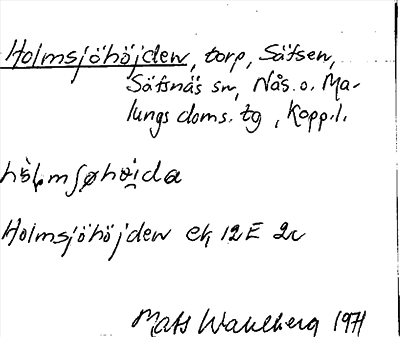 Holmsjöhöjden, torp, Säfsen,
Säfsnäs sn, Nås. o. Ma-
lungs doms. tg, Kopp. l.
Holmsjöhöjden ek 12 E 2c
Mats Wahlberg 1971